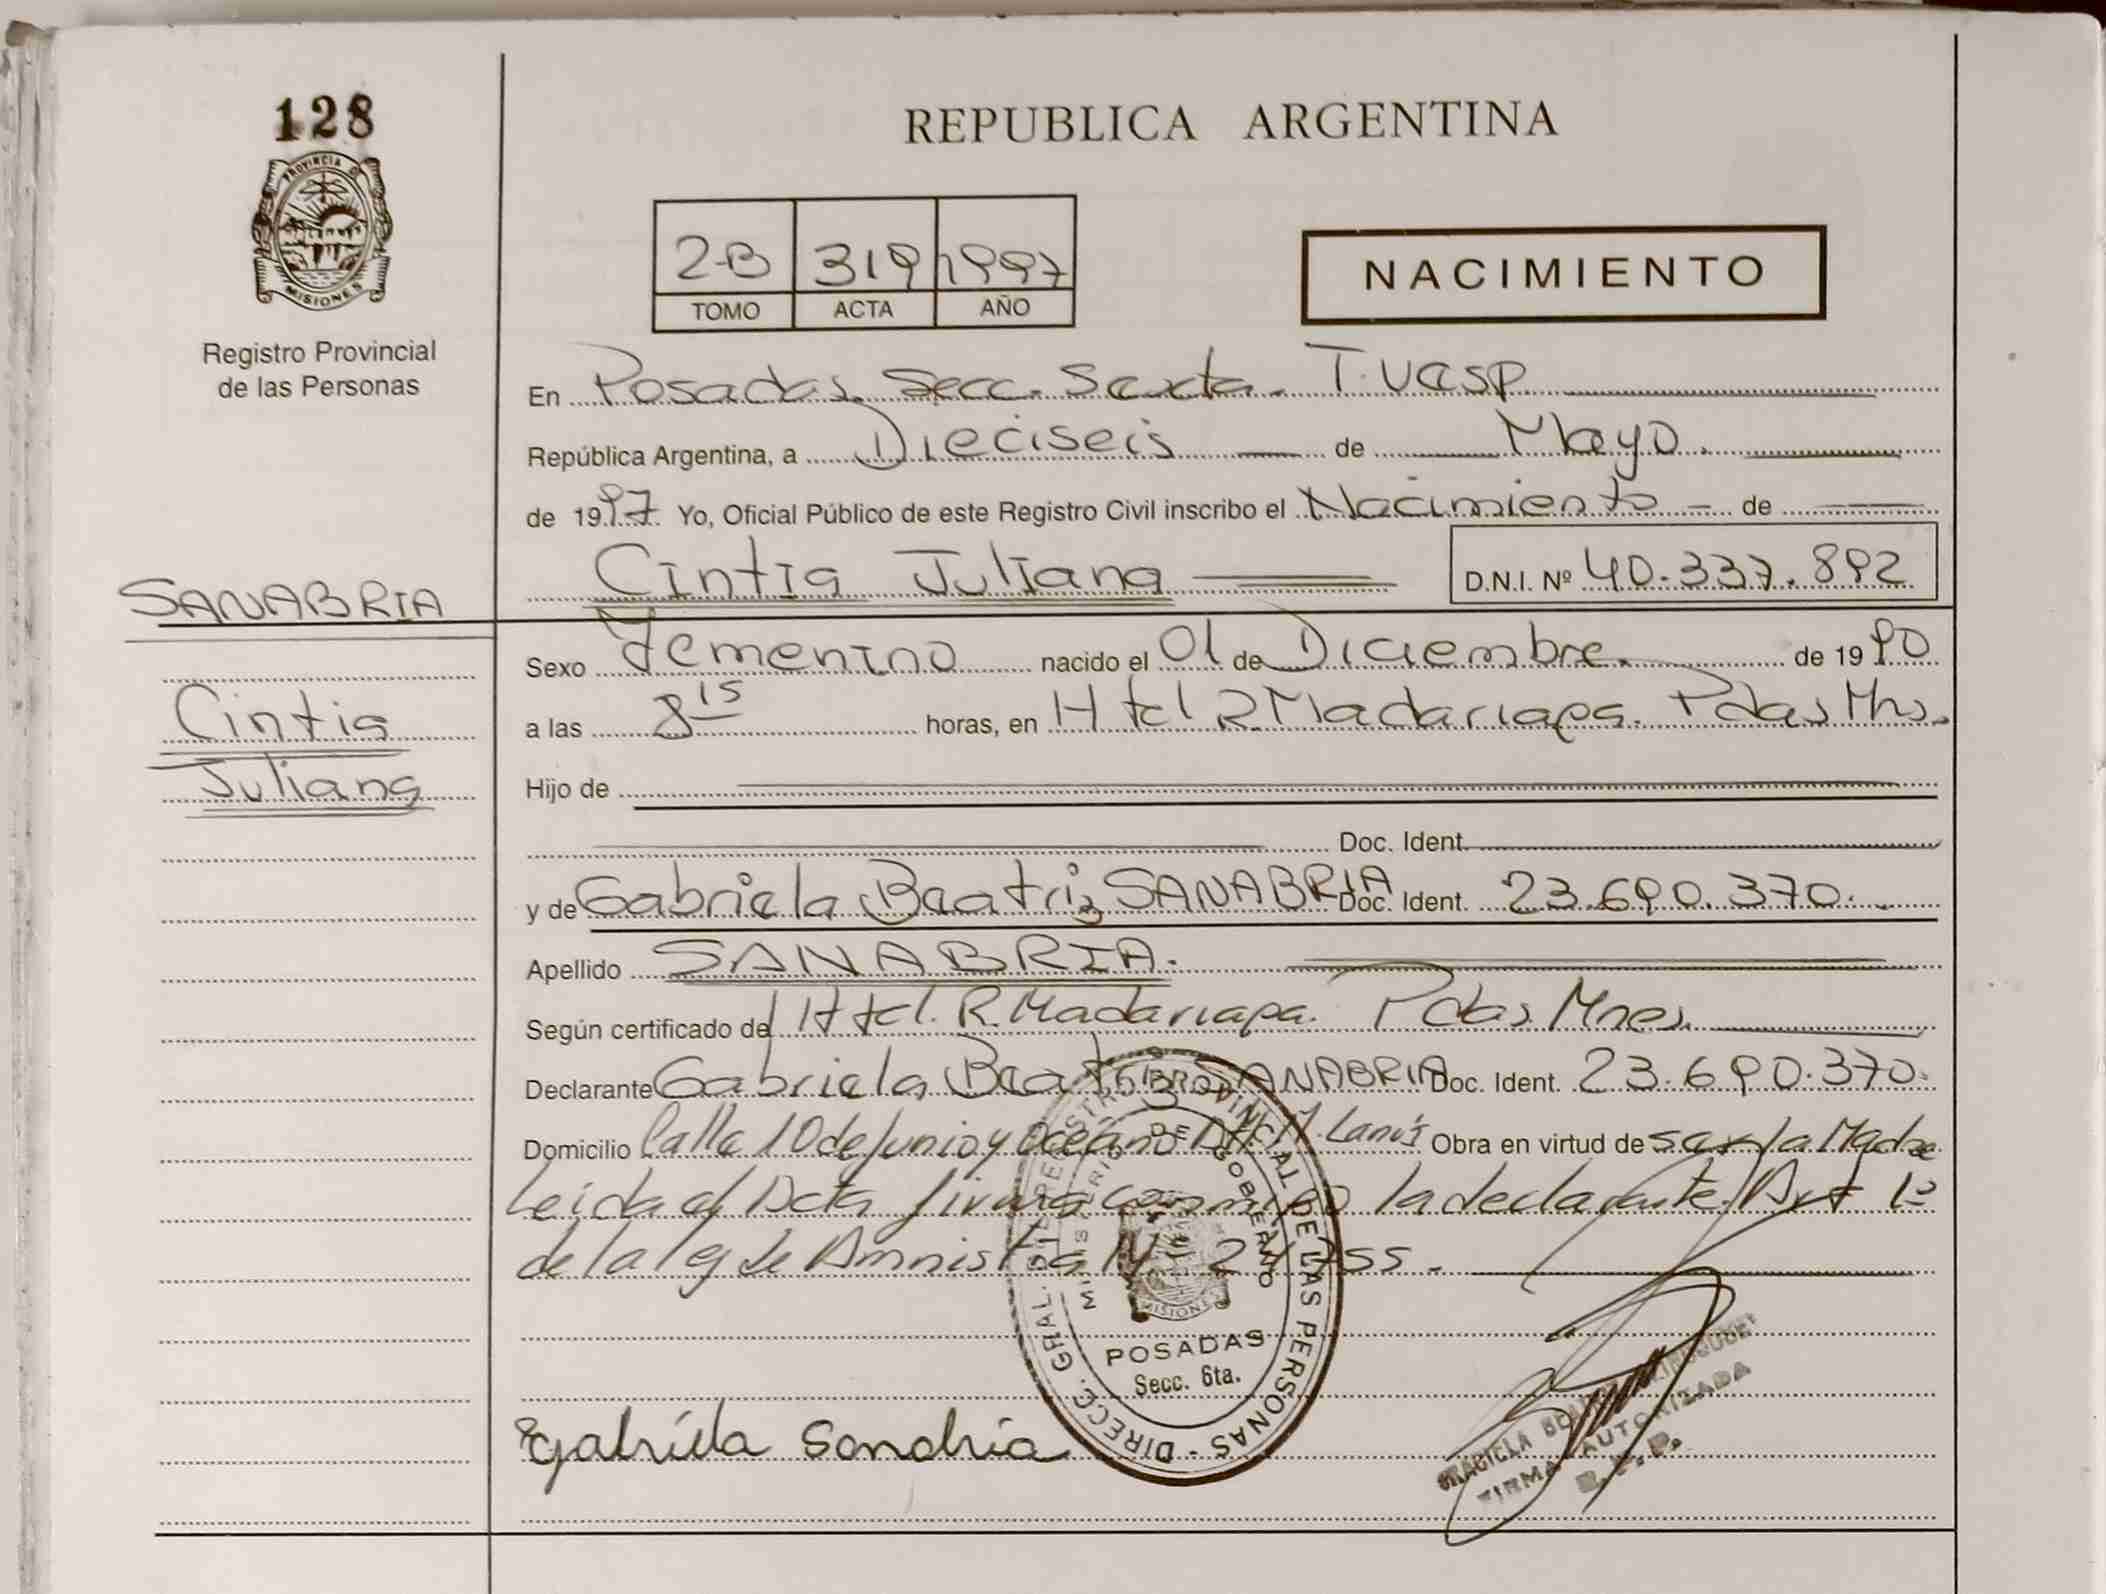 128
PROVINCIA DE
MISIONES
Registro Provincial
de las Personas
REPUBLICA ARGENTINA
2-B 319 1997
TOMO ACTA AÑO
NACIMIENTO
En Posadas. Secc. Sexta. T.VCSP
República Argentina, a Dieciseis de Mayo.
de 1997. Yo, Oficial Público de este Registro Civil inscribo el Nacimiento de
Cintia Juliana D.N.I. Nº 40.337.892
SANABRIA
Cintia
Juliana
Sexo Femenino nacido el 01 de Diciembre. de 1990
a las 8 15 horas, en Htcl R Madariaga. Pdas Mns.
Hijo de
Doc. Ident.
y de Gabriela Beatriz SANABRIA Doc. Ident. 23.690.370.
Apellido SANABRIA.
Según certificado de Htcl. R. Madariaga. Pdas Mnes.
Declarante Gabriela Beatriz SANABRIA Doc. Ident. 23.690.370.
Domicilio Calle 10 de Junio y Oceano M. Lanús Obra en virtud de ser la Madre
Leida el Acta firma conmigo la declarante. Art 1º
de la ley de Amnistia Nº 24755.
DIRECC. GRAL. DEL REGISTRO PROVINCIAL DE LAS PERSONAS
MINISTERIO DE GOBIERNO
MISIONES
POSADAS
Secc. 6ta.
Gabriela Sanabria
GRACIELA BEATRIZ
FIRMA AUTORIZADA
R.P.P.